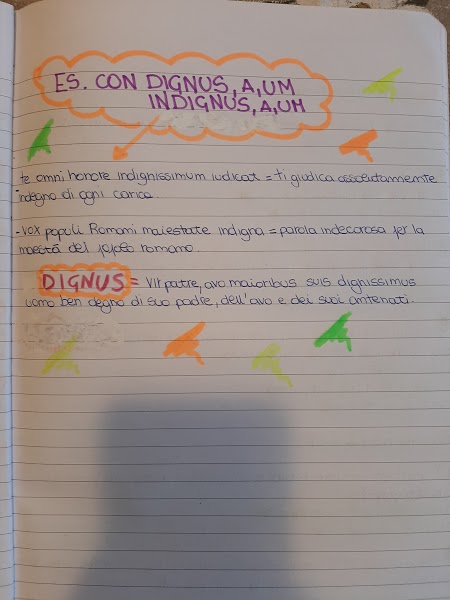 ES. CON DIGNUS, A, UM
INDIGNUS, A, UM
te omni honore indignissimum iudicat = ti giudica assolutamente
indegno di ogni carica.
- vox populi Romani maiestate indigna = parola indecorosa per la
maestà del popolo romano.
DIGNUS = Vir patre, avo maioribus suis dignissimus
uomo ben degno di suo padre, dell'avo e dei suoi antenati.